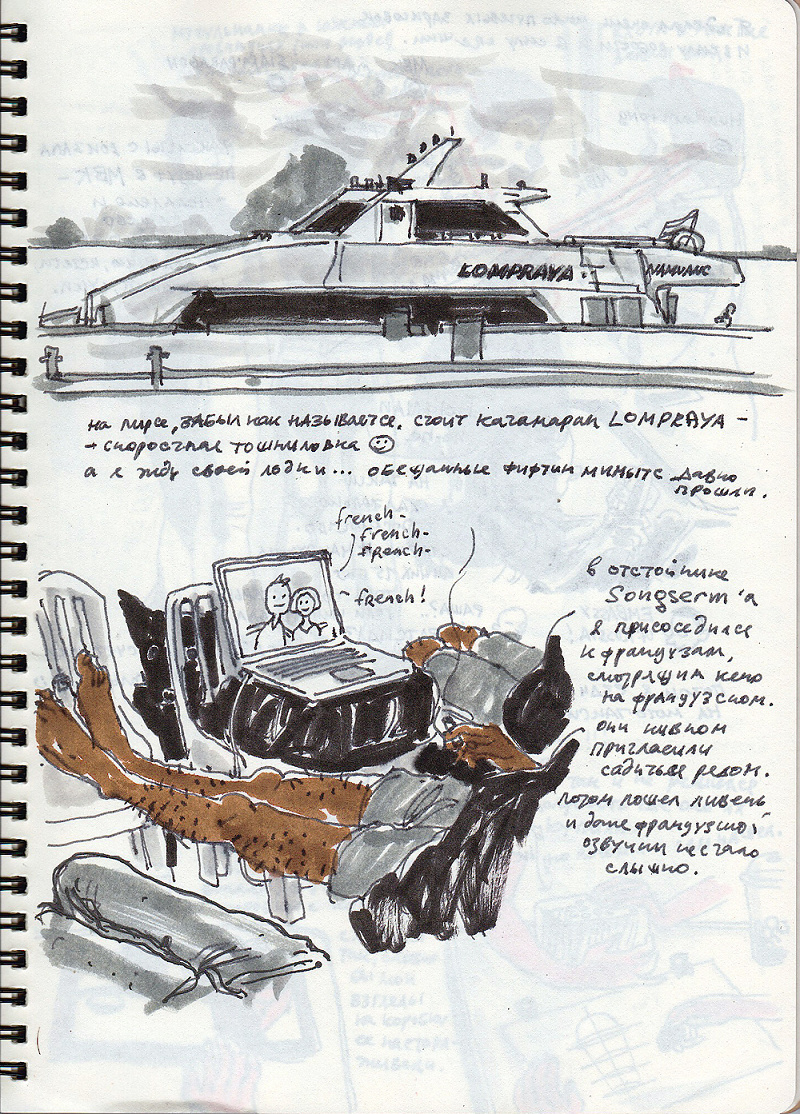 LOMPRAYA
на пирсе, ЗАБЫЛ как называется, стоит катамаран LOMPRAYA –
- скоростная тошниловка ☺
а я жду своей лодки... обещанные фифтин минытс давно
прошли.
french-
french-
french-
french!
в отстойнике
Songserm'а
я присоединился
к французам,
смотрящим кено
на французском.
они кивком
пригласили
садиться рядом.
потом пошел ливень
и даже французской
озвучки не стало
слышно.